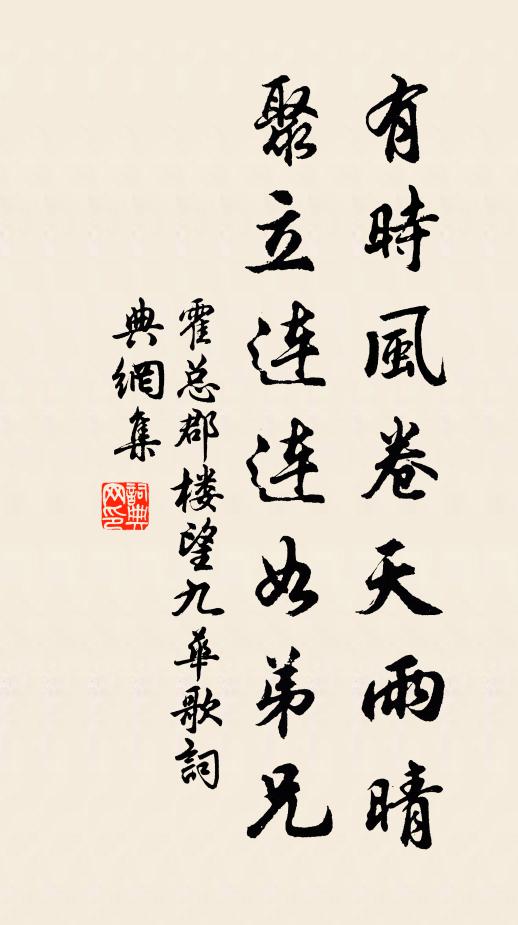 有時風卷天雨晴
聚立连连如弟兄
霍总郡楼望九華歌詞
典網集
詞典
网印